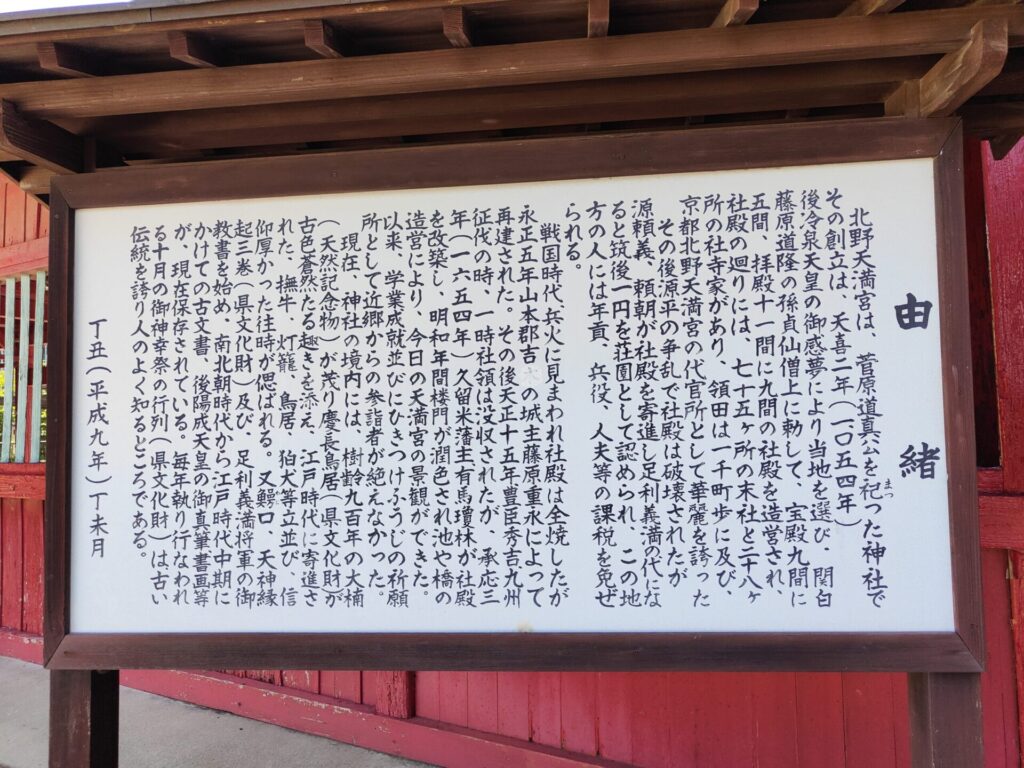 由緒
北野天満宮は、菅原道真公を祀った神社で
まつ
その創立は、天喜二年(一〇五四年)
後冷泉天皇の御感夢により当地を選び・関白
藤原道隆の孫貞仙僧上に勅して、宝殿九間に
五間、拝殿十一間に九間の社殿を造営され、
社殿の廻りには、七十五ヶ所の末社と三十八ヶ
所の社寺家があり、領田は一千町歩に及び、
京都北野天満宮の代官所として華麗を誇った
その後源平の争乱で社殿は破壊されたが
源頼義、頼朝が社殿を寄進し足利義満の代にな
ると筑後一円を荘園として認められ、この地
方の人には年貢、兵役、人夫等の課税を免ぜ
られる。
戦国時代、兵火に見まわれ社殿は全焼したが
永正五年山本郡吉木の城主藤原重永によって
再建された。その後天正十五年豊臣秀吉九州
征伐の時、一時社領は没収されたが、承応三
年(一六五四年)久留米藩主有馬瓊林が社殿
を改築し、明和年間楼門が潤色され池や橋の
造営により、今日の天満宮の景観ができた。
以来、学業成就並びにひきつけふうじの祈願
所として近郷からの参詣者が絶えなかった。
現在、神社の境内には、樹齢九百年の大楠
(天然記念物)が茂り慶長鳥居(県文化財)が
古色蒼然たる趣きを添え、江戸時代に寄進さ
れた、撫牛 灯籠、鳥居、狛犬等立並び、信
仰厚かった往時が偲ばれる。又鰐口、天神縁
起三巻(県文化財)及び、足利義満将軍の御
教書を始め、南北朝時代から江戸時代中期に
かけての古文書、後陽成天皇の御真筆書画等
が、現在保存されている。毎年執り行なわれ
る十月の御神幸祭の行列(県文化財)は古い
伝統を誇り人のよく知るところである。
丁丑(平成九年)丁未月